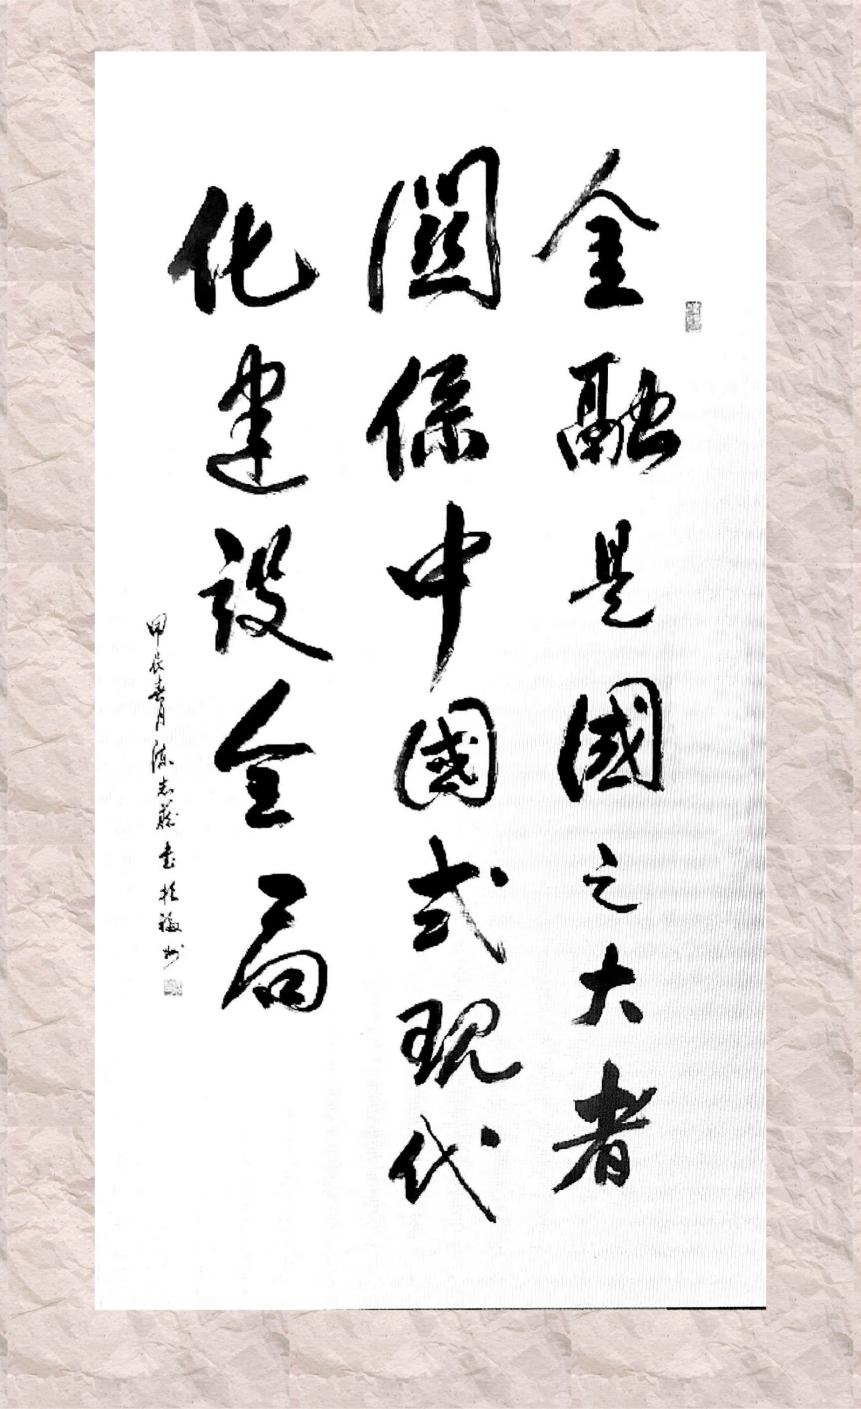 金融是國之大者
關係中國式現代
化建設全局
甲辰春月陈志聪書於福州